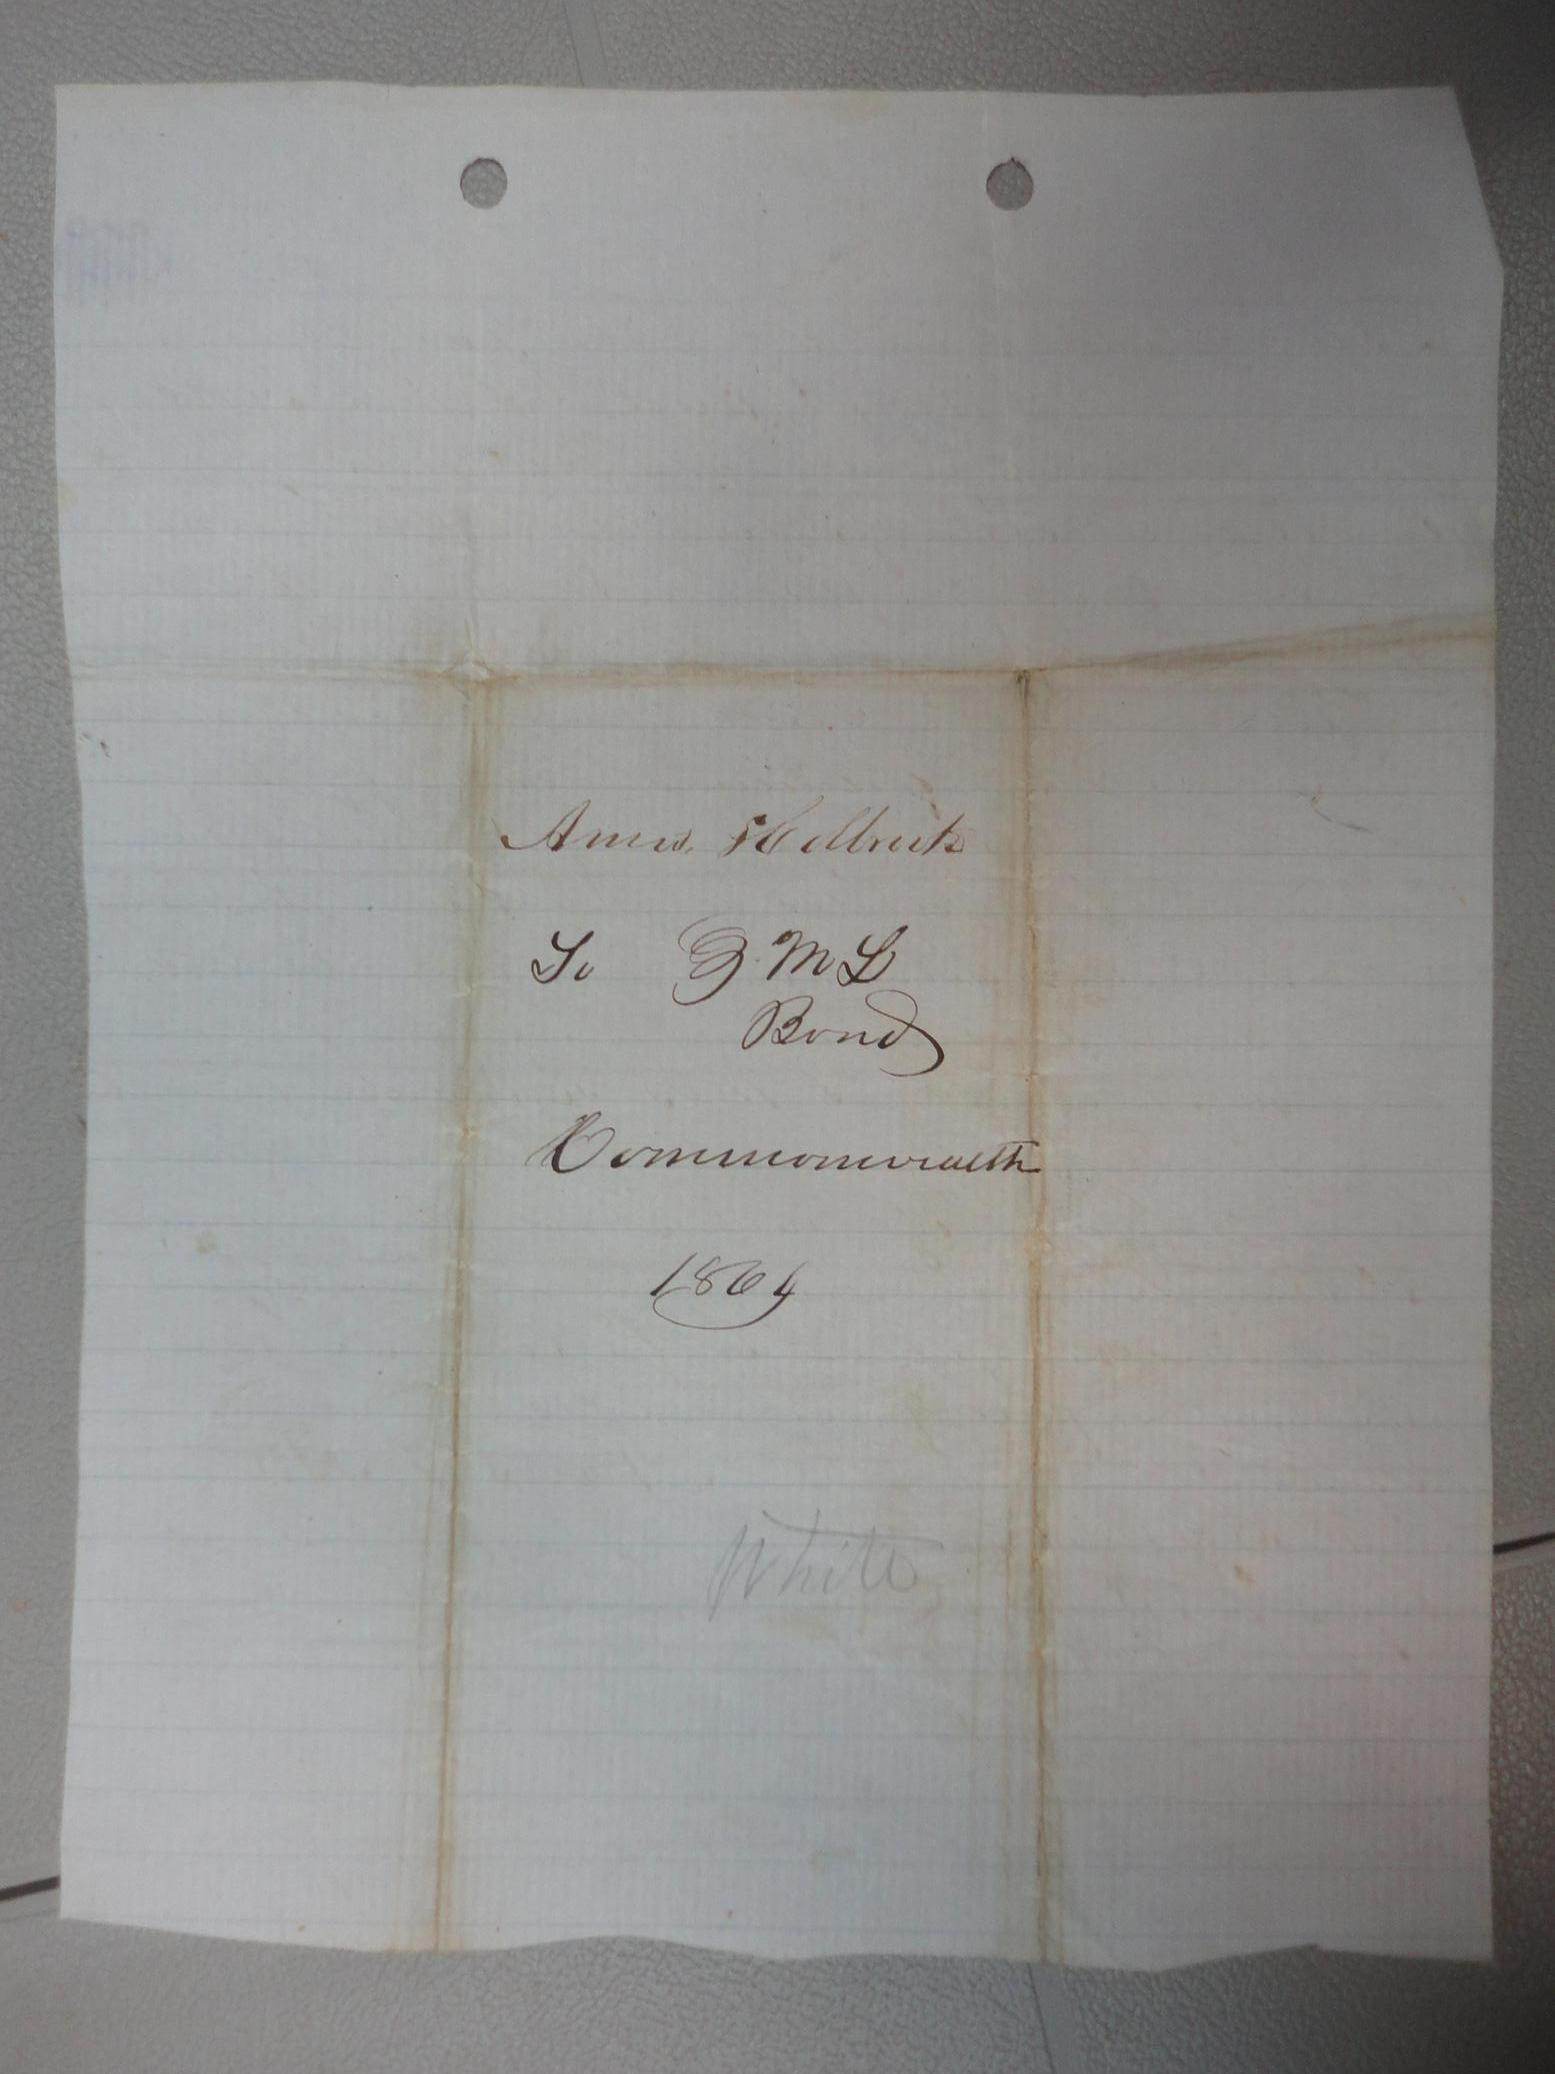 Amos Holbrook
To
Bond
Commonwealth
1864
White